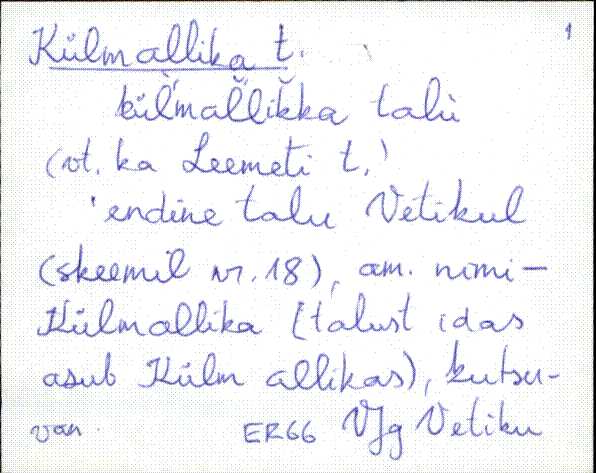 Külmallika t. 1
kü̬l̀mal̆lĭkka talù
(vt. ka Leemeti t.)
'endine talu Vetikul
(skeemil nr. 18), am. nimi -
Külmallika [talust idas
asub Külm allikas), kutsu-
van. ER66 VJg Vetiku